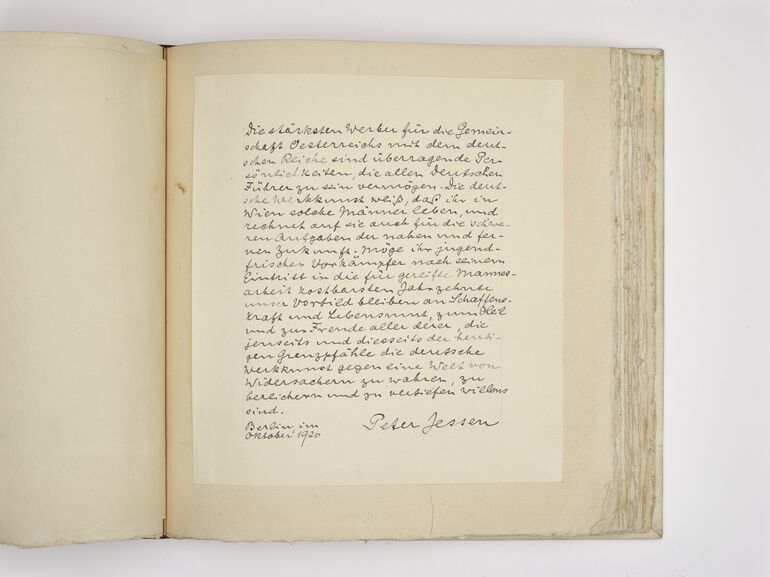 Die stärksten Werber für die Gemein-
schaft Oesterreichs mit dem deut-
schen Reiche sind überragende Per-
sönlichkeiten, die allen Deutschen
Führer zu sein vermögen. Die deut-
sche Werkkunst weiß, daß ihr in
Wien solche Männer leben, und
rechnet auf sie auch für die schwe-
ren Aufgaben der nahen und fer-
nen Zukunft. Möge ihr jugend-
frischer Vorkämpfer nach seinem
Eintritt in die für gereifte Mannes-
arbeit kostbarsten Jahrzehnte
unser Vorbild bleiben an Schaffens-
kraft und Lebensmut, zum Heil
und zur Freude aller derer, die
jenseits und diesseits der heuti-
gen Grenzpfähle die deutsche
Werkkunst gegen eine Welt von
Widersachern zu wahren, zu
bereichern und zu vertiefen willens
sind.
Berlin, im
Oktober 1920
Peter Jessen